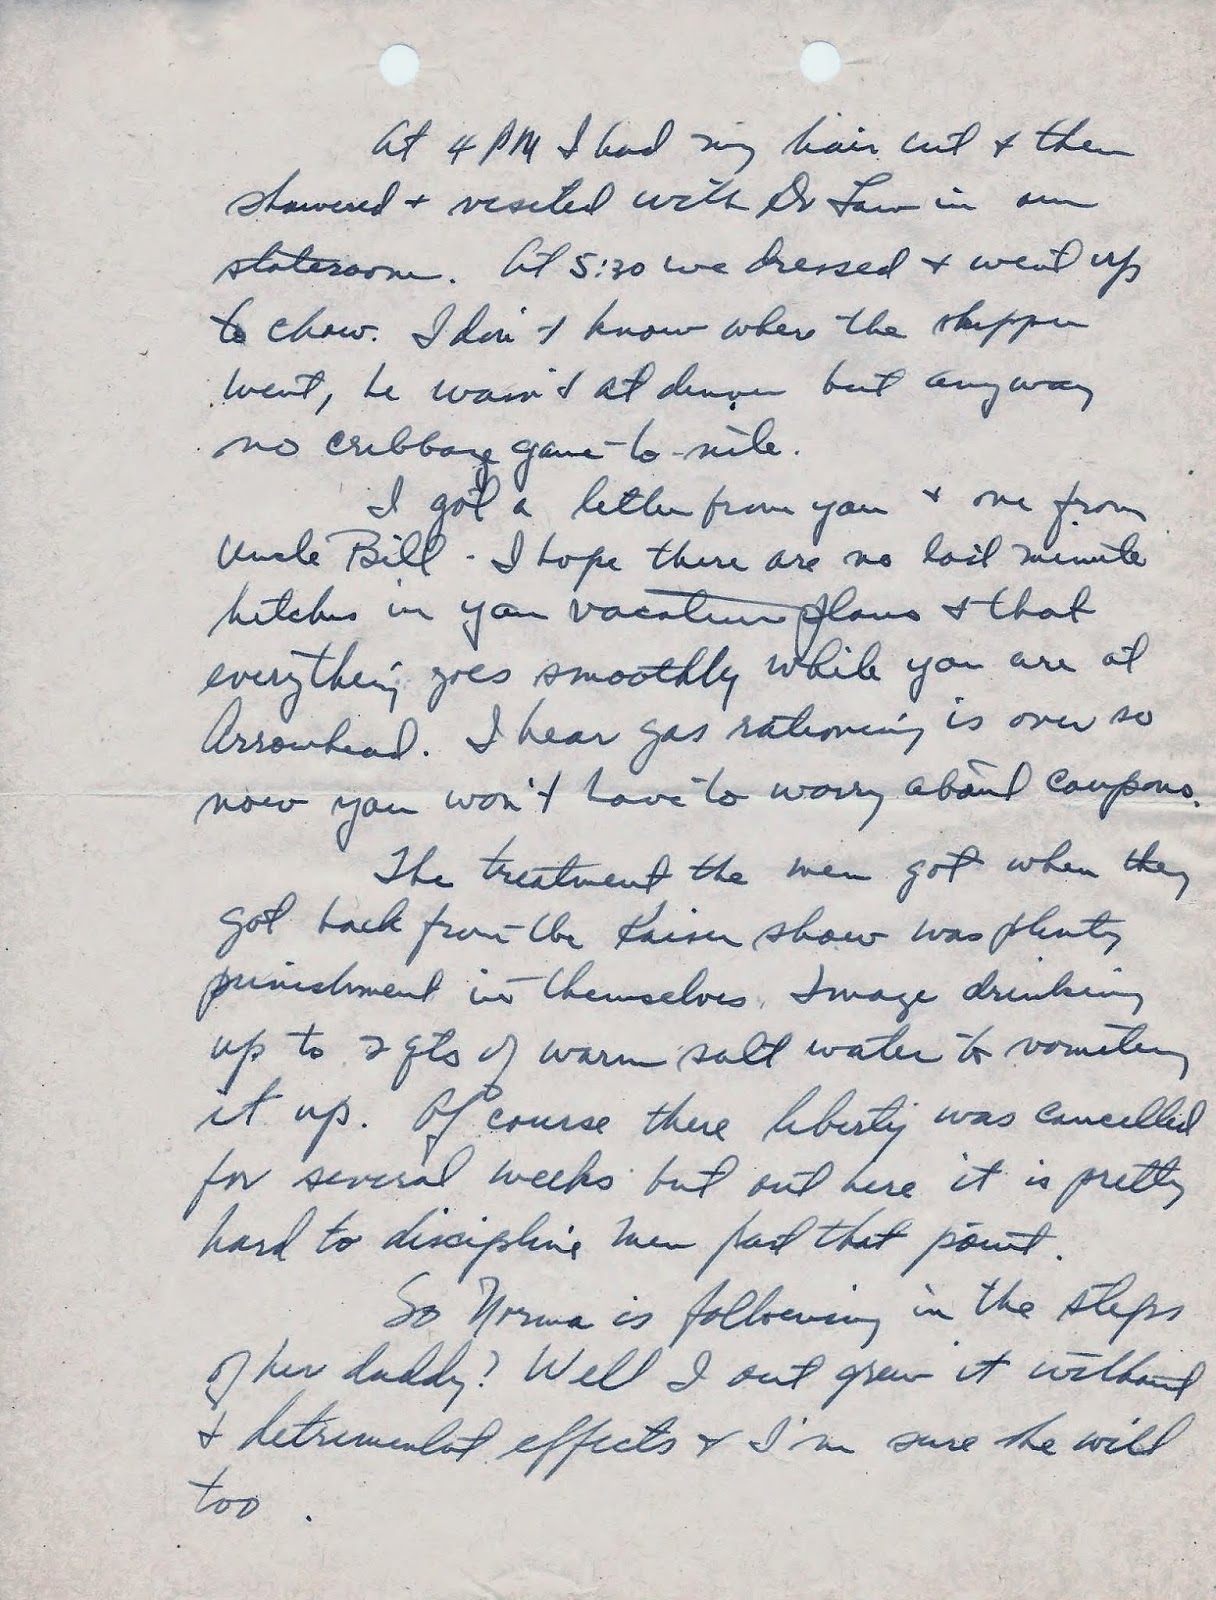 At 4 PM I had my hair cut & then
showered + visited with Dr Law in our
stateroom. At 5:30 we dressed & went up
to chow. I don't know where the skipper
went, he wasn't at dinner but anyway
no cribbage game to-nite.
I got a letter from you & one from
Uncle Bill - I hope there are no last minute
hitches in your vacation plans & that
everything goes smoothly while you are at
Arrowhead. I hear gas rationing is over so
now you won't have to worry about coupons.
The treatment the men got when they
got back from the Kaiser show was plenty
punishment in themselves. Image drinking
up to 2 qts of warm salt water & vomiting
it up. Of course there liberty was cancelled
for several weeks but out here it is pretty
hard to discipline men past that point.
So Norma is following in the steps
of her daddy? Well I out grew it without
& detrimental effects & I'm sure she will
too.